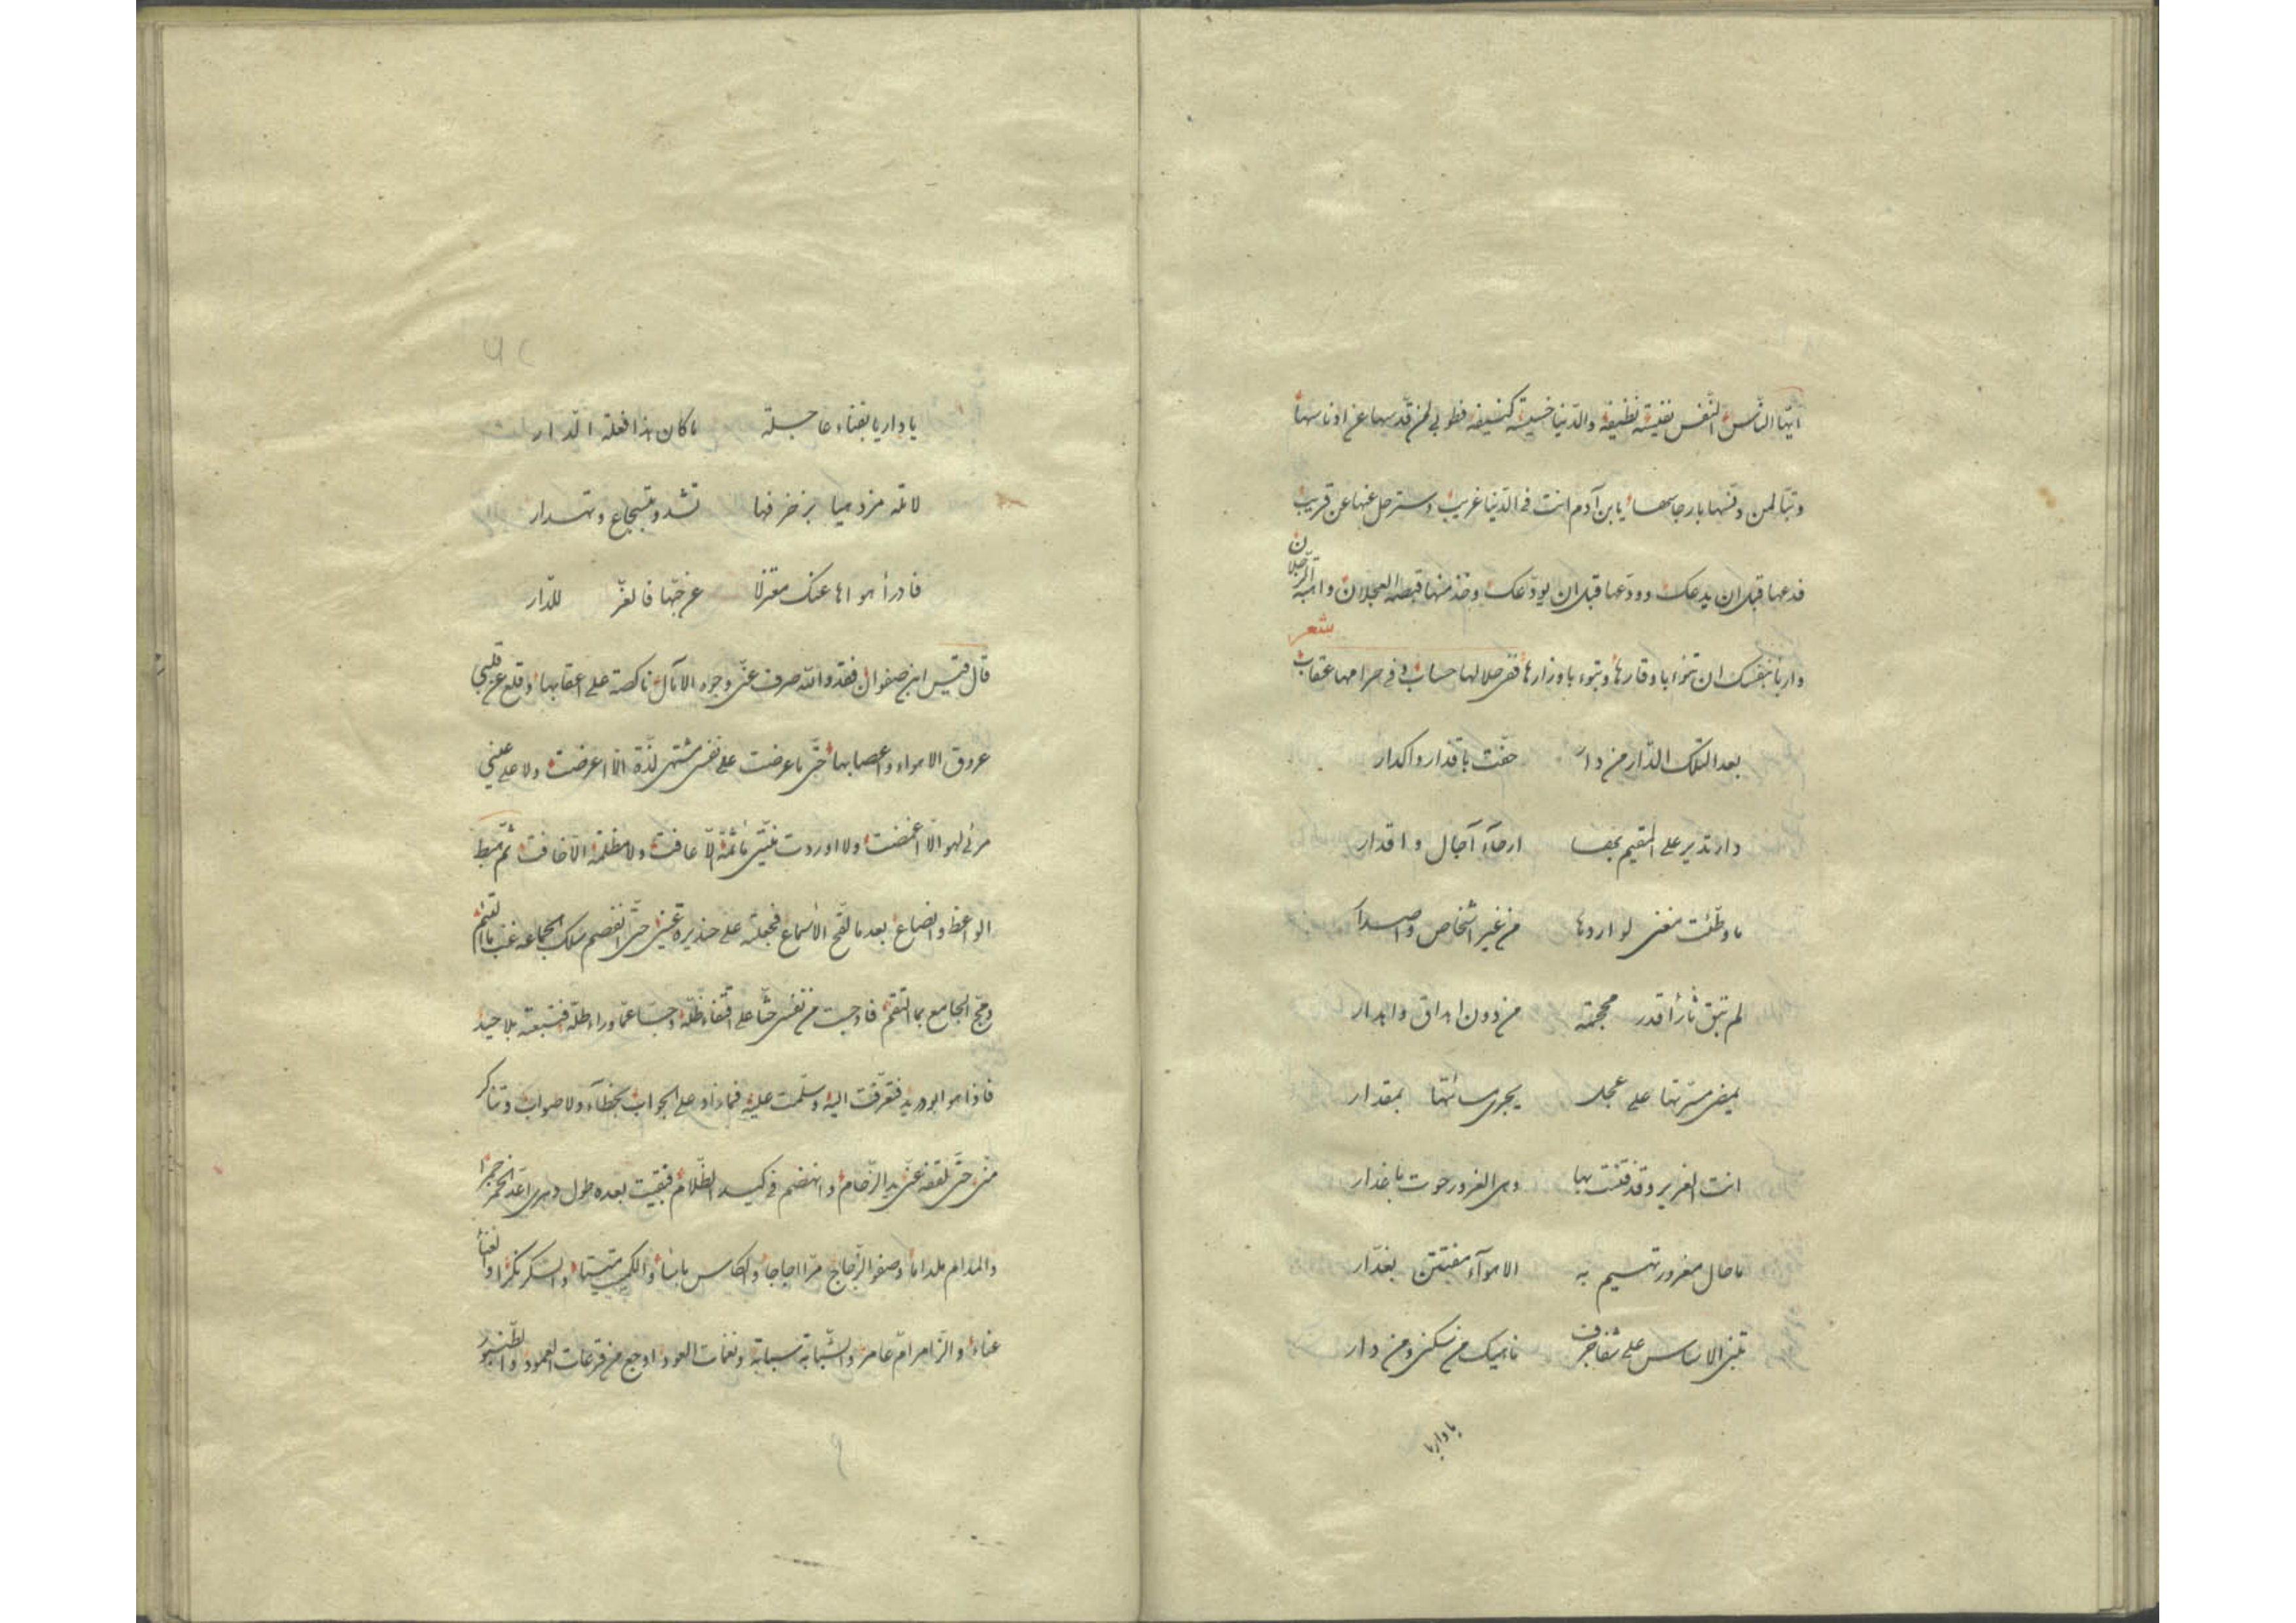 ايّها النّاس النّفس نفيسة نظيفة والدّنيا خسيسة كنيفة فطوبى لمن قدّسها عن ادناسها
وتبّا لمن دنّسها بارجاسها يا بن آدم انت فى الدّنيا غريب وسترحل عنها عن قريب
فدعها قبل ان يدعك وودّعها قبل ان يودّعك وخذ منها قبصة العجلان واهبة الرّحلان
شعر
واربا بنفسك ان تنوء باوقارها وتبوء باوزارها ففى حلالها حساب وفى حرامها عقاب
بعدا لتلك الدّار من دار حفّت باقذار واكدار
دار تدير على المقيم بها ارحآء آجال واقدار
ما وطّئت مغنى لواردها من غير اشخاص واصدار
لم تبق ثأرا قدر محجمة من دون اهراق واهدار
يمضى مسرّتها على عجل يجرى مسائتها بمقدار
انت الغرير وقد فتنت بها وهى الغرور حوت باغدار
ما حال مغرور تهيم به الاهوآء مفتتن بغدّار
تبنى الاساس على شفا جرف ناهيك من سكنى ومن دار
يا دار يا
يا دار يا بفناء عاجلة ما كان هذا فعلة الدّار
لا تله مزدهيا بزخرفها تشدو بتسجاع وتهدار
فادرأ هواها عنك معتزلا عن حبّها فالعزّ للدّار
قال قيس ابن صفوان فقد والله صرف عنّى وجوه الآمال ناكصة على اعقابها وقلع عن قلبى
عروق الاهواء واعصابها حتّى ما عرضت على نفسى مشتهى لذّة الّا اعرضت ولا على عينى
مرئى لهو الّا اغمضت ولا اوردت نيّتى مأثمة الّا عافت ولا مظلمة الّا خافت ثمّ هبط
الواعظ وانصاع بعد ما لقح الأسماع فجعلته على حذيرة عينى حتّى انفصم سلك الجماعة غبّ ما انتظم
ومجّ الجامع بما التقم فاوجست من نفسى حثّا على اقتفاء ظلّه وحبّا عمّا وراء طلّه فتبعته بلا حيد
فاذا هو ابو دريد فتقرّبت اليه وسلّمت عليه فما زاد على الجواب بخطآء ولا صواب وتناكر
منّى حتّى نفضه عنّى يد الزّحام وانهضم فى كبد الظّلام فبقيت بعده طول دهرى اعدّ الخمر جمرا
والمدام ملداما وصفو الزّجاج مرّا اجاجا والكاس باسا والكميت ميتا والسّكر نكرا والغناء
عناء والزّامر امّ عامر والشّبّابة سبابة ونغمات العود اوجع من قرعات العمود والطّنبور